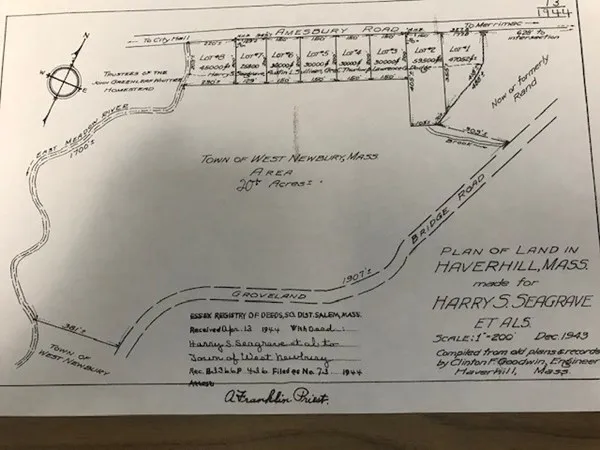 13
1944
To City Hall
AMESBURY ROAD
To Merrimac
628' to
intersection
LOT #8
45000
LOT #7
LOT #6
30000
LOT #5
30000
LOT #4
30000
LOT #3
30000
LOT #2
LOT #1
Harry S. Seagrave
Sullivan
TRUSTEES OF THE
JOHN GREENLEAF WHITTIER
HOMESTEAD
Now or formerly
Rand
BROOK
EAST MEADOW RIVER
1700's
TOWN OF WEST NEWBURY, MASS.
AREA
20± Acres
BRIDGE ROAD
1907's
GROVELAND
381's
TOWN OF
WEST NEWBURY
PLAN OF LAND IN
HAVERHILL, MASS.
made for
HARRY S. SEAGRAVE
ET ALS.
SCALE: 1"=200' Dec. 1943
Compiled from old plans & records
by Clinton F. Goodwin, Engineer
Haverhill, Mass.
ESSEX REGISTRY OF DEEDS, SO. DIST. SALEM, MASS.
Received Apr. 13 1944 With Deed
Harry S. Seagrave et al to
Town of West Newbury
Rec. B. 3366 P. 426 Filed as No. 73 1944
Attest
A. Franklin Priest.